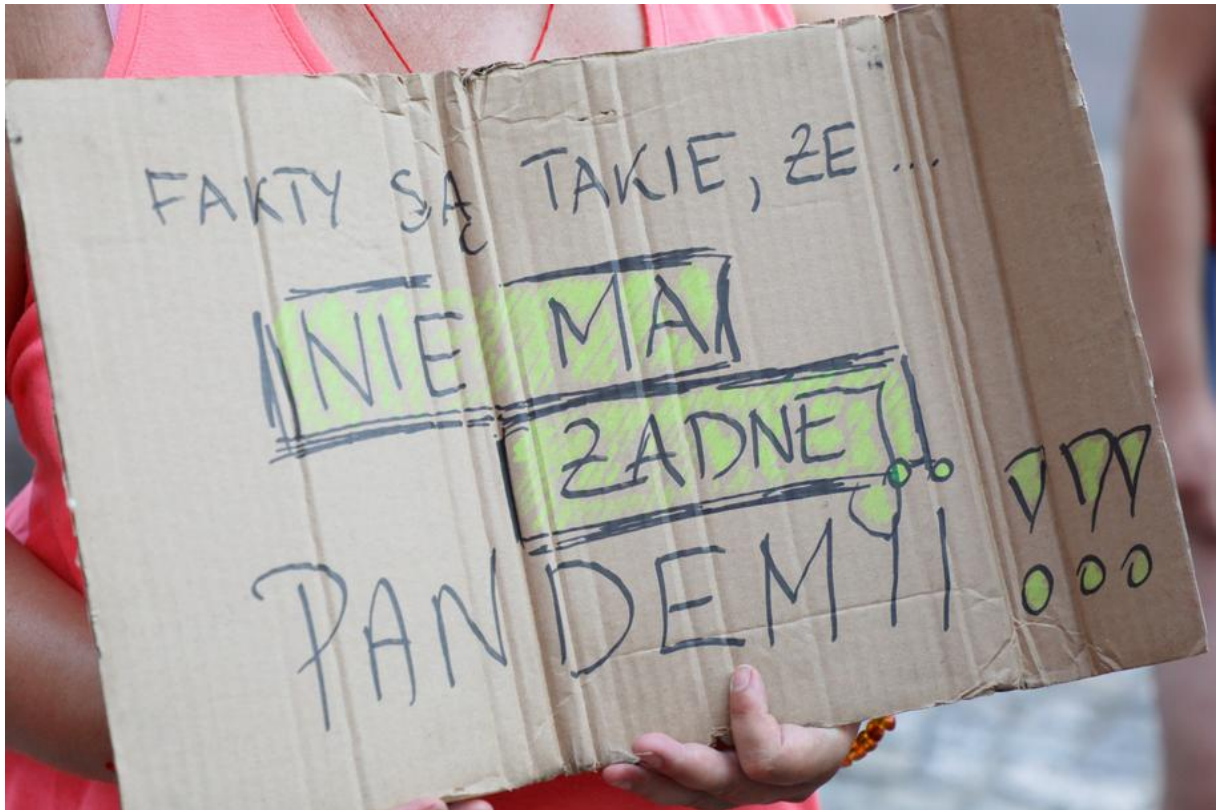 FAKTY SĄ TAKIE, ŻE ...
NIE MA
ŻADNEJ
PANDEMII !!!